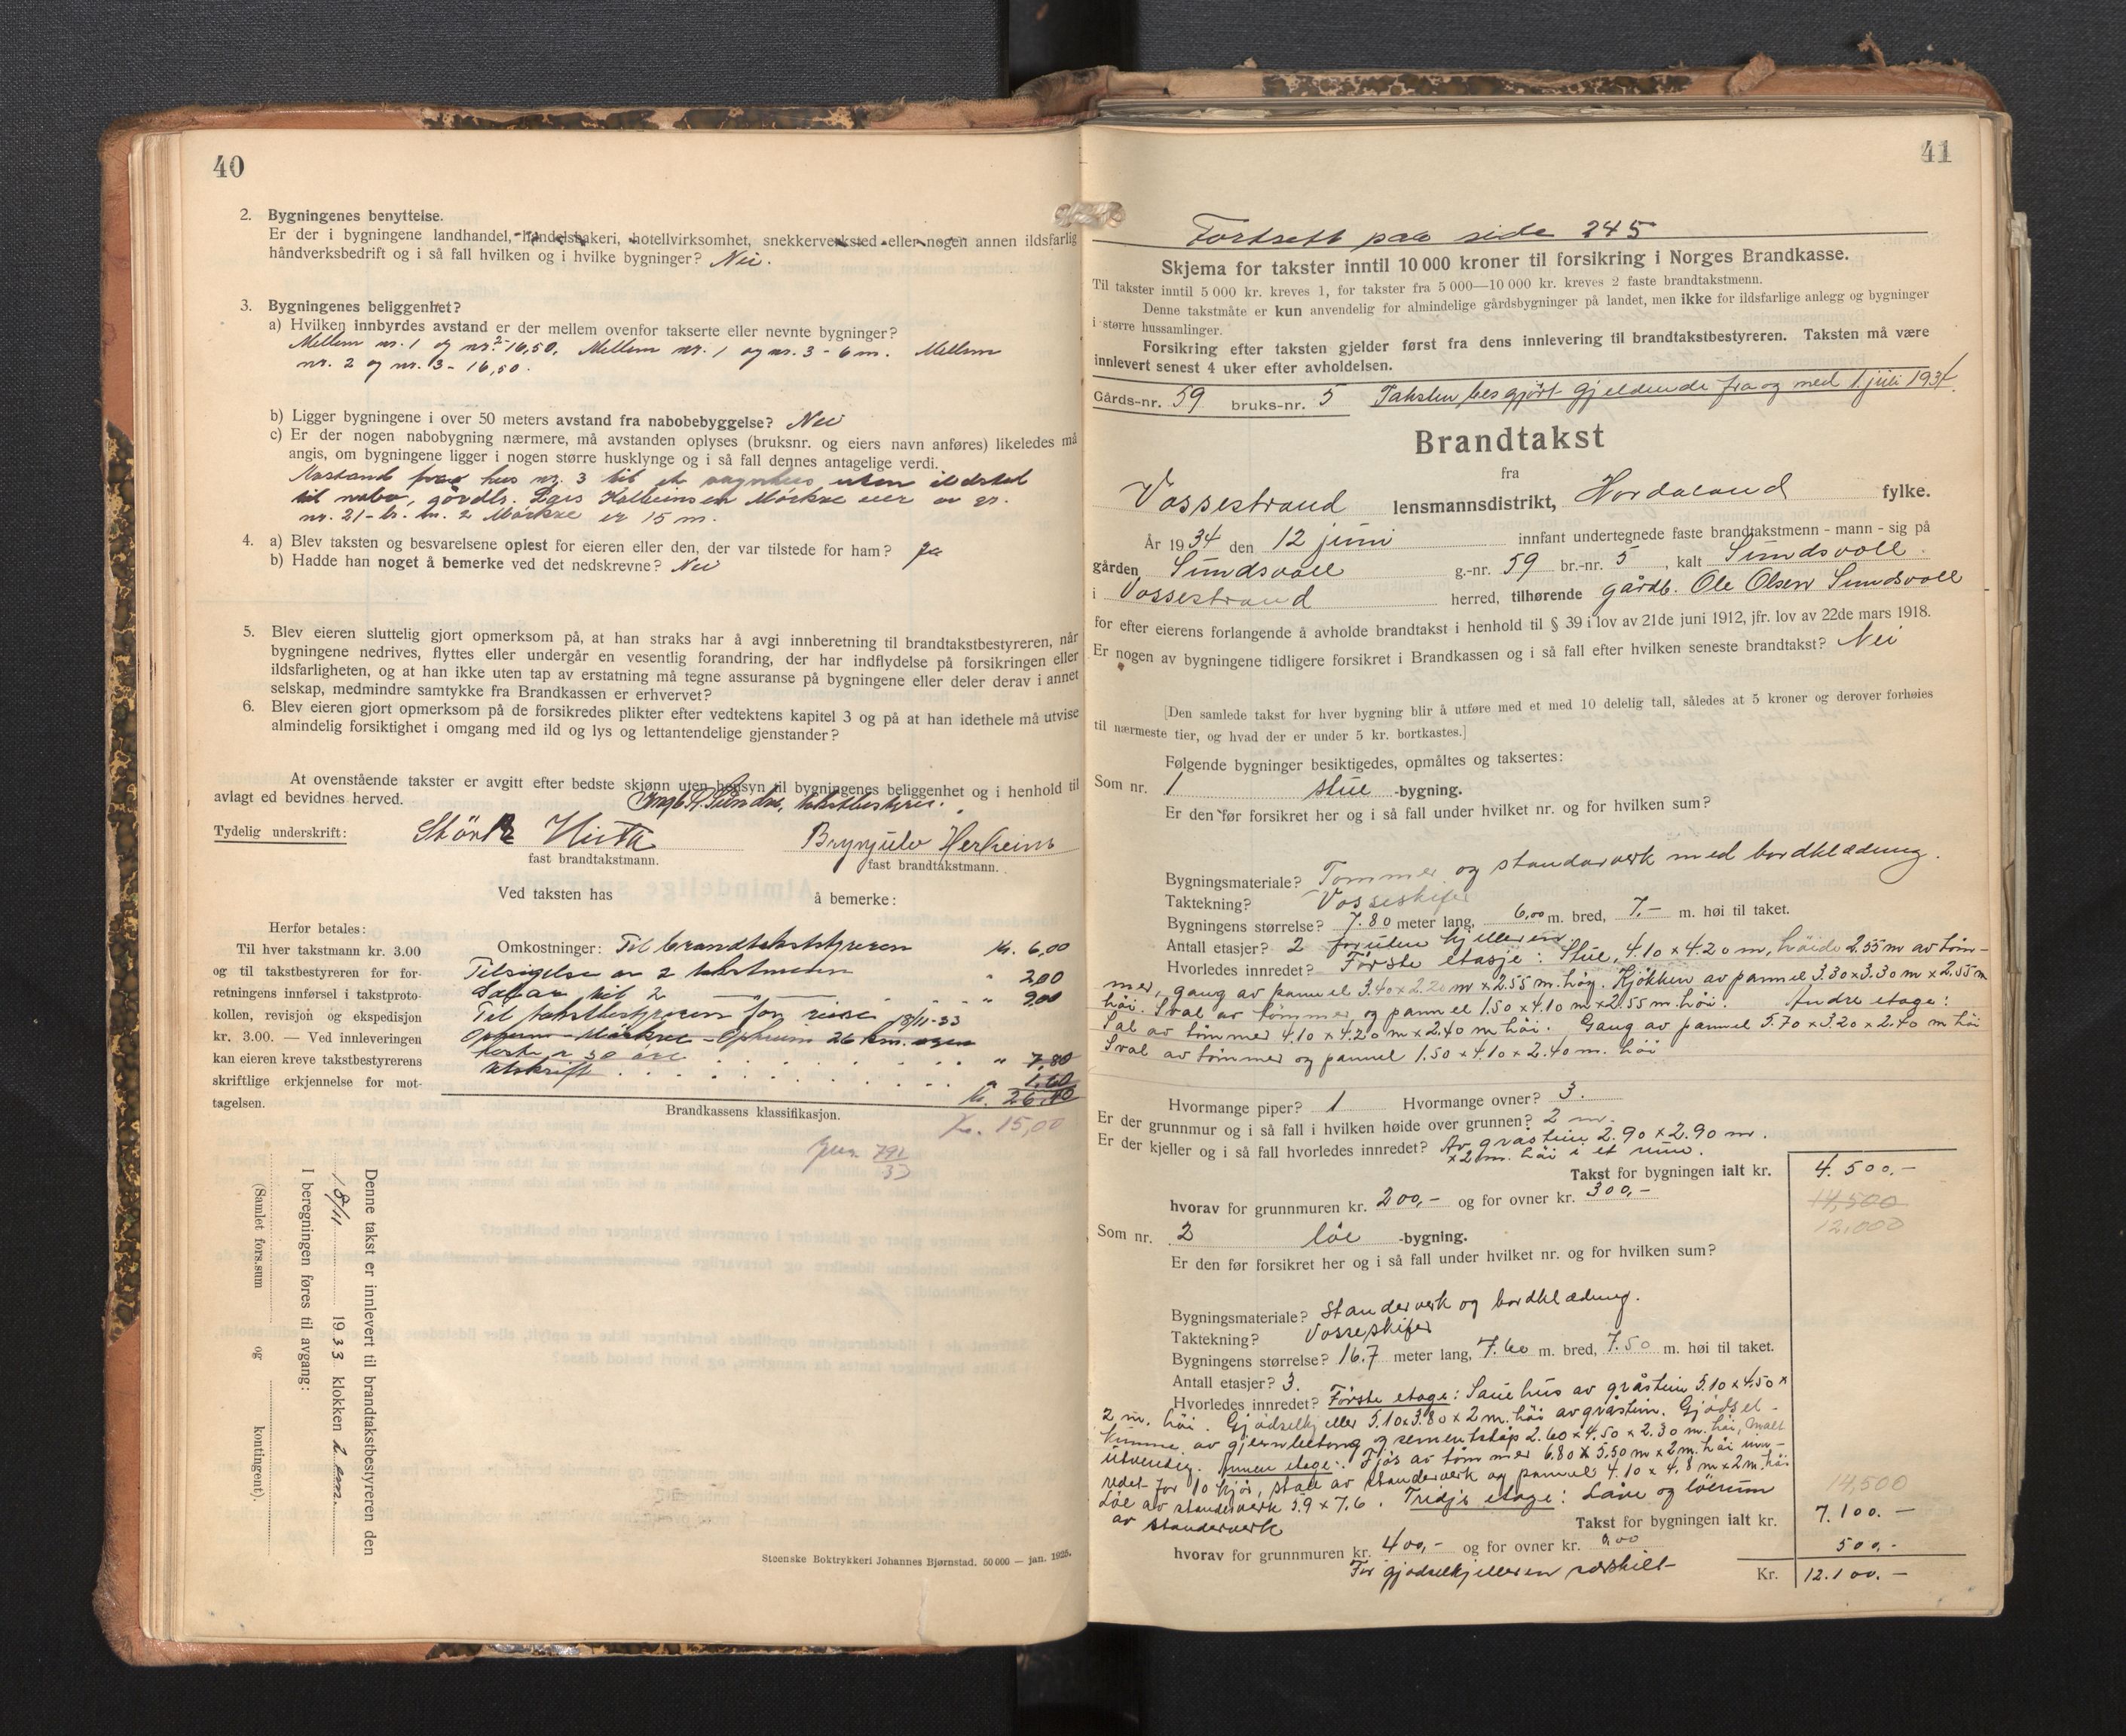 40
2. Bygningenes benyttelse.
Er der i bygningene landhandel, handelsbakeri, hotellvirksomhet, snekkerverksted eller nogen annen ildsfarlig
håndverksbedrift og i så fall hvilken og i hvilke bygninger? Nei.
3. Bygningenes beliggenhet?
a) Hvilken innbyrdes avstand er der mellem ovenfor takserte eller nevnte bygninger?
Mellem nr. 1 og nr. 2 - 16,50. Mellem nr. 1 og nr. 3 - 6 m. Mellem
nr. 2 og nr. 3 - 16,50.
b) Ligger bygningene i over 50 meters avstand fra nabobebyggelse? Nei
c) Er der nogen nabobygning nærmere, må avstanden oplyses (bruksnr. og eiers navn anføres) likeledes må
angis, om bygningene ligger i nogen større husklynge og i så fall dennes antagelige verdi.
Avstand fraa hus nr. 3 til et vognhus uten ildsted
til nabo, gårdbr. Lars Mörkve eier av gr.
nr. 21 - br. nr. 2 Mörkve er 15 m.
4. a) Blev taksten og besvarelsene oplest for eieren eller den, der var tilstede for ham? Ja
b) Hadde han noget å bemerke ved det nedskrevne? Nei
5. Blev eieren sluttelig gjort opmerksom på, at han straks har å avgi innberetning til brandtakstbestyreren, når
bygningene nedrives, flyttes eller undergår en vesentlig forandring, der har indflydelse på forsikringen eller
ildsfarligheten, og at han ikke uten tap av erstatning må tegne assuranse på bygningene eller deler derav i annet
selskap, medmindre samtykke fra Brandkassen er erhvervet?
6. Blev eieren gjort opmerksom på de forsikredes plikter efter vedtektens kapitel 3 og på at han idethele må utvise
almindelig forsiktighet i omgang med ild og lys og lettantendelige gjenstander?
At ovenstående takster er avgitt efter bedste skjønn uten hensyn til bygningenes beliggenhet og i henhold til
avlagt ed bevidnes herved. takstbestyrer.
Tydelig underskrift: Brynjulv Herheim
fast brandtakstmann. fast brandtakstmann.
Ved taksten has å bemerke:
Herfor betales:
Til hver takstmann kr. 3.00
og til takstbestyreren for for-
retningens innførsel i takstproto-
kollen, revisjon og ekspedisjon
kr. 3.00. — Ved innleveringen
kan eieren kreve takstbestyrerens
skriftlige erkjennelse for mot-
tagelsen.
Omkostninger: Til brandtakstbstyreren kr. 6,00
Tilsigelse av 2 takstmenn " 2,00
til 2 " 9,00
Til takstbestyreren for reise 18/11-33
Opheim - Mörkve - Opheim 26 km. egen
hest a 30 öre " 7,80
Utskrift " 1,60
kr. 26,40
Brandkassens klassifikasjon.
kr. 15,00
Jour. 791/33
Denne takst er innlevert til brandtakstbestyreren den
18/11 1933 klokken 2 em.
I beregningen føres til avgang:
(Samlet fors.sum og kontingent).
Steenske Boktrykkeri Johannes Bjørnstad. 50 000 — jan. 1925.
41
Fortsett paa side 245
Skjema for takster inntil 10 000 kroner til forsikring i Norges Brandkasse.
Til takster inntil 5 000 kr. kreves 1, for takster fra 5 000—10 000 kr. kreves 2 faste brandtakstmenn.
Denne takstmåte er kun anvendelig for almindelige gårdsbygninger på landet, men ikke for ildsfarlige anlegg og bygninger
i større hussamlinger.
Forsikring efter taksten gjelder først fra dens innlevering til brandtakstbestyreren. Taksten må være
innlevert senest 4 uker efter avholdelsen.
Gårds-nr. 59 bruks-nr. 5 Taksten bes gjort gjeldende fra og med 1 juli 1934.
Brandtakst
fra
Vossestrand lensmannsdistrikt, Hordaland fylke.
År 1934 den 12 juni innfant undertegnede faste brandtakstmenn - mann - sig på
gården Sundsvoll g.-nr. 59 br.-nr. 5, kalt Sundsvoll.
i Vossestrand herred, tilhørende gårdb. Ole Olsen Sundsvoll
for efter eierens forlangende å avholde brandtakst i henhold til § 39 i lov av 21de juni 1912, jfr. lov av 22de mars 1918.
Er nogen av bygningene tidligere forsikret i Brandkassen og i så fall efter hvilken seneste brandtakst? Nei
[Den samlede takst for hver bygning blir å utføre med et med 10 delelig tall, således at 5 kroner og derover forhøies
til nærmeste tier, og hvad der er under 5 kr. bortkastes.]
Følgende bygninger besiktigedes, opmåltes og taksertes:
Som nr. 1 stue -bygning.
Er den før forsikret her og i så fall under hvilket nr. og for hvilken sum?
Bygningsmateriale? Tømmer og standarverk med bordklædung.
Taktekning? Vosseskifer
Bygningens størrelse? 7.80 meter lang, 6,00 m. bred, 7.- m. høi til taket.
Antall etasjer? 2 foruten kjelleren
Hvorledes innredet? Første etasje: Stue, 4.10 x 4.20 m, höide 2.55 m av töm-
mer, gang av pannel 3.40 x 2.20 m x 2.55 m. høy. Kjøkken av pannel 3.30 x 3.30 m x 2.55 m
høi. Sval av tømmer og pannel 1.50 x 4.10 m x 2.55 m. høi. Andre etage:
Sal av tømmer 4.10 x 4.20 m x 2.40 m høi. Gang av pannel 5.70 x 3.20 x 2.40 m høi
Sval av tömmer og pannel 1.50 x 4.10 x 2.40 m. høi
Hvormange piper? 1 Hvormange ovner? 3.
Er der grunnmur og i så fall i hvilken høide over grunnen? 2 m.
Er der kjeller og i så fall hvorledes innredet? Av gråstein 2.90 x 2.90 m.
x 2 m. høi i et rum.
Takst for bygningen ialt kr. 4.500.-
hvorav for grunnmuren kr. 200,- og for ovner kr. 300,-
14,500
12,000
Som nr. 2 löe -bygning.
Er den før forsikret her og i så fall under hvilket nr. og for hvilken sum?
Bygningsmateriale? Standerverk og bordklædung.
Taktekning? Vosseskifer
Bygningens størrelse? 16.7 meter lang, 7.60 m. bred, 7.50 m. høi til taket.
Antall etasjer? 3.
Hvorledes innredet? Første etage: Sauehus av gråstein 5.10 x 4.50 x
2 m. høi. Gjødselkjeller 5.10 x 3.80 x 2 m. høi av gråstein. Gjødsel-
kumme av gjernbetong og sementstøp 2.60 x 4.50 x 2.30 m. høi, malt
utvendig. Annen etage: Fjøs av tømmer 6.80 x 5.50 m x 2 m. høi inn-
redet for 10 kjør, stall av standerverk og pannel 4.10 x 4.8 m x 2 m. høi
Løe av standerverk 5.9 x 7.6. Tridje etage: Låve og löerum
av standerverk
14,500
Takst for bygningen ialt kr. 7.100.-
hvorav for grunnmuren kr. 400,- og for ovner kr. 0,00
For gjødselkjelleren særskilt 500.-
Kr. 12.100.-